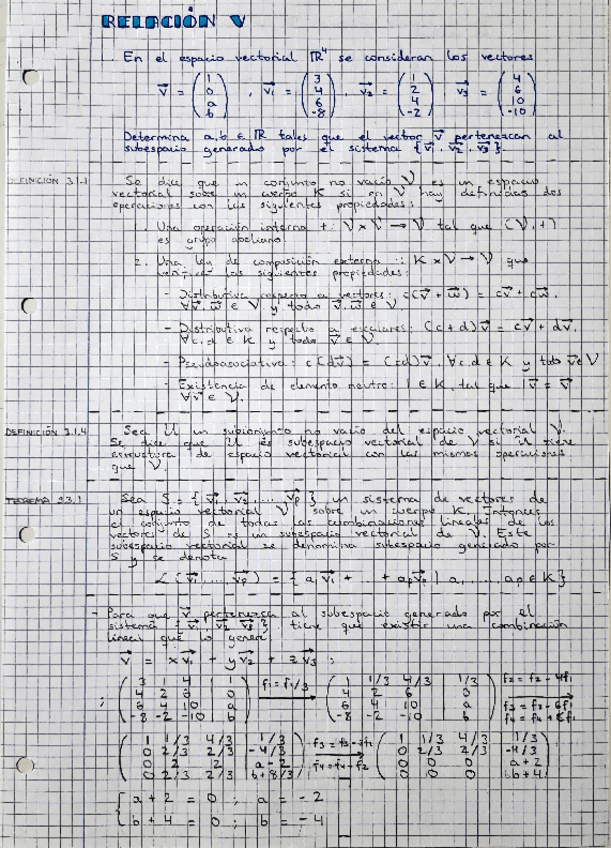 RELACIÓN V
En el espacio vectorial ℝ⁴ se consideran los vectores
v⃗ = (1 0 a b), v⃗₁ = (3 4 6 -8), v⃗₂ = (1 2 4 -2), v⃗₃ = (4 6 10 -10)
Determina a,b ∈ ℝ tales que el vector v⃗ pertenezcan al
subespacio generado por el sistema {v⃗₁, v⃗₂, v⃗₃}
DEFINICIÓN 3.1.1
Se dice que un conjunto no vacío V es un espacio
vectorial sobre un cuerpo K si en V hay definidas dos
operaciones con las siguientes propiedades:
1. Una operación interna +: V×V → V tal que (V,+)
es grupo abeliano
2. Una ley de composición externa ·: K×V → V que
verifica las siguientes propiedades:
- Distributiva respecto a vectores: c(v⃗ + w⃗) = cv⃗ + cw⃗,
y todo v⃗,w⃗ ∈ V
- Distributiva respecto a escalares: (c+d)v⃗ = cv⃗ + dv⃗,
∀c,d ∈ K y todo v⃗ ∈ V.
- Pseudoasociativa: c(dv⃗) = (cd)v⃗, ∀c,d ∈ K y todo v⃗∈V
- Existencia de elemento neutro: 1 ∈ K, tal que 1v⃗ = v⃗
∀v⃗ ∈ V.
DEFINICIÓN 3.1.4
Sea U un subconjunto no vacío del espacio vectorial V.
Se dice que U es subespacio vectorial de V si U tiene
estructura de espacio vectorial con las mismas operaciones
que V.
TEOREMA 3.3.1
Sea S = {v⃗₁, v⃗₂, ... v⃗p} un sistema de vectores de
un espacio vectorial V sobre un cuerpo K. Entonces
el conjunto de todas las combinaciones lineales de los
vectores de S es un subespacio vectorial de V. Este
subespacio vectorial se denomina subespacio generado por
S y se denota
L(v⃗₁, ..., v⃗p) = {a₁v⃗₁ + ... + apv⃗p | a₁, ..., ap ∈ K}
- Para que v⃗ pertenezca al subespacio generado por el
sistema {v⃗₁, v⃗₂, v⃗₃}, tiene que existir una combinación
lineal que lo genera
v⃗ = xv⃗₁ + yv⃗₂ + zv⃗₃ ;
3 1 4 | 1 f₁ = f₁/3 1 1/3 4/3 | 1/3 f₂ = f₂ - 4f₁
4 2 6 | 0 4 2 6 | 0
6 4 10 | a 6 4 10 | a f₃ = f₃ - 6f₁
-8 -2 -10 | b -8 -2 -10 | b f₄ = f₄ + 8f₁
1 1/3 4/3 | 1/3 f₃ = f₃ - 3f₂ 1 1/3 4/3 | 1/3
0 2/3 2/3 | -4/3 f₄ = f₄ - f₂ 0 2/3 2/3 | -4/3
0 2 2 | a - 2 0 0 0 | a + 2
0 2/3 2/3 | b + 8/3 0 0 0 | b + 4
a + 2 = 0 ; a = -2
b + 4 = 0 ; b = -4